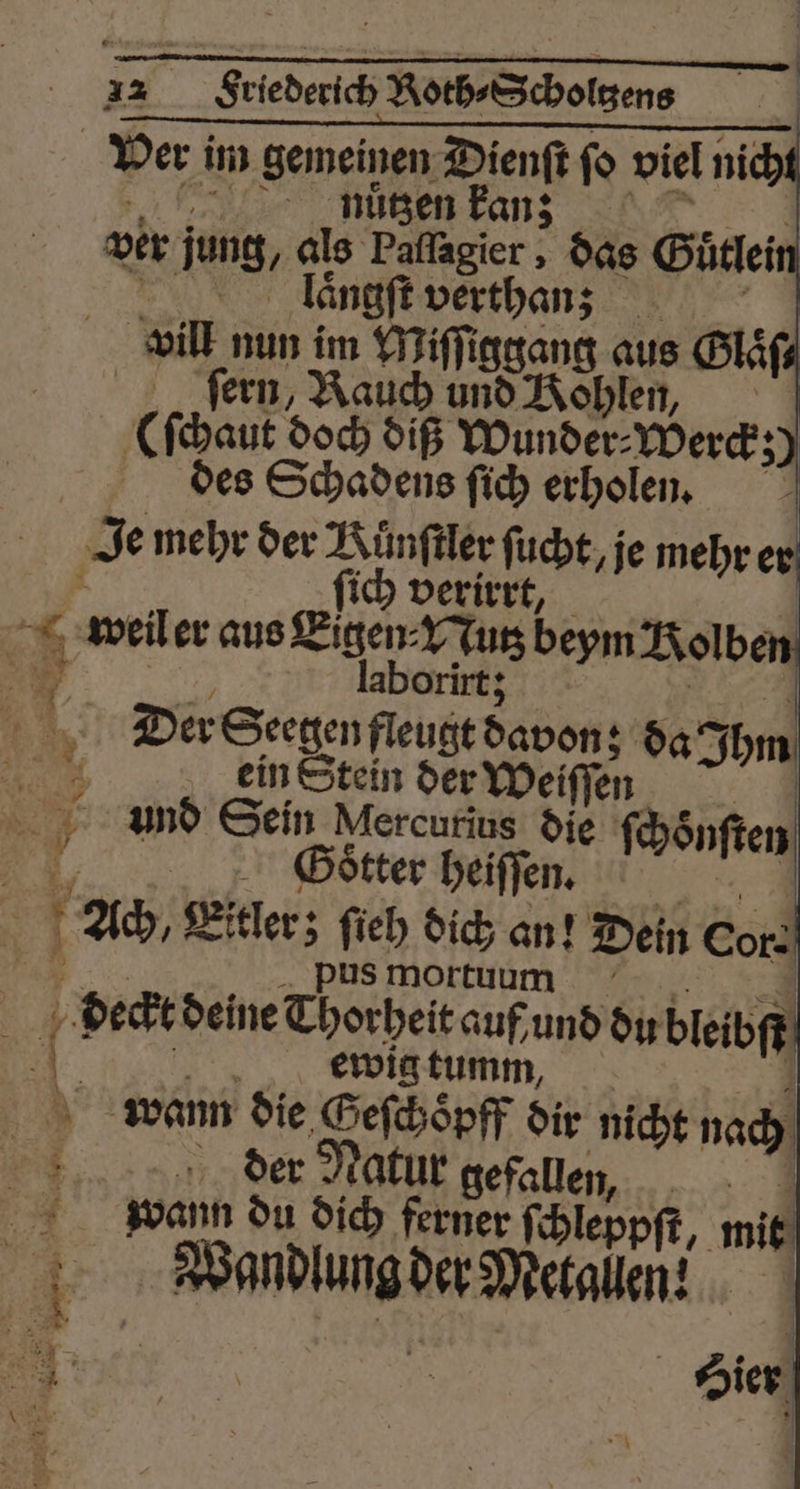 12 Friederich Roth-Scholtzens
Wer im gemeinen Dienſt ſo viel nicht
nuͤtzen kan;
wer jung, als Paſſagier, das Guͤtlein
laͤngſt verthan;
will nun im Miſſiggang aus Glaͤſ-
ſern, Rauch und Kohlen,
(ſchaut doch diß Wunder-Werck;)
des Schadens ſich erholen.
Je mehr der Kuͤnſtler ſucht, je mehr er
ſich verirrt,
weil er aus Eigen-Nutz beym Kolben
laborirt;
Der Seegen fleugt davon; da Ihm
ein Stein der Weiſſen
und Sein Mercurius die ſchoͤnſten
Goͤtter heiſſen.
Ach, Eitler; ſieh dich an! Dein Cor-
pus mortuum
deckt deine Thorheit auf, und du bleibſt
ewig tumm,
wann die Geſchoͤpff dir nicht nach
der Natur gefallen,
wann du dich ferner ſchleppſt, mit
Wandlung der Metallen!
Hier